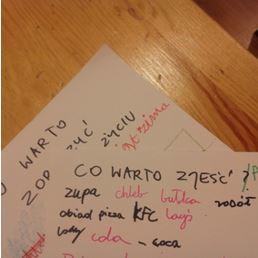 O WARTO
ZOP ŻYĆ
ŻYCIU
CO WARTO ZJEŚĆ?
zupa chleb bułka
obiad pizza KFC lay's
lody cola - coca